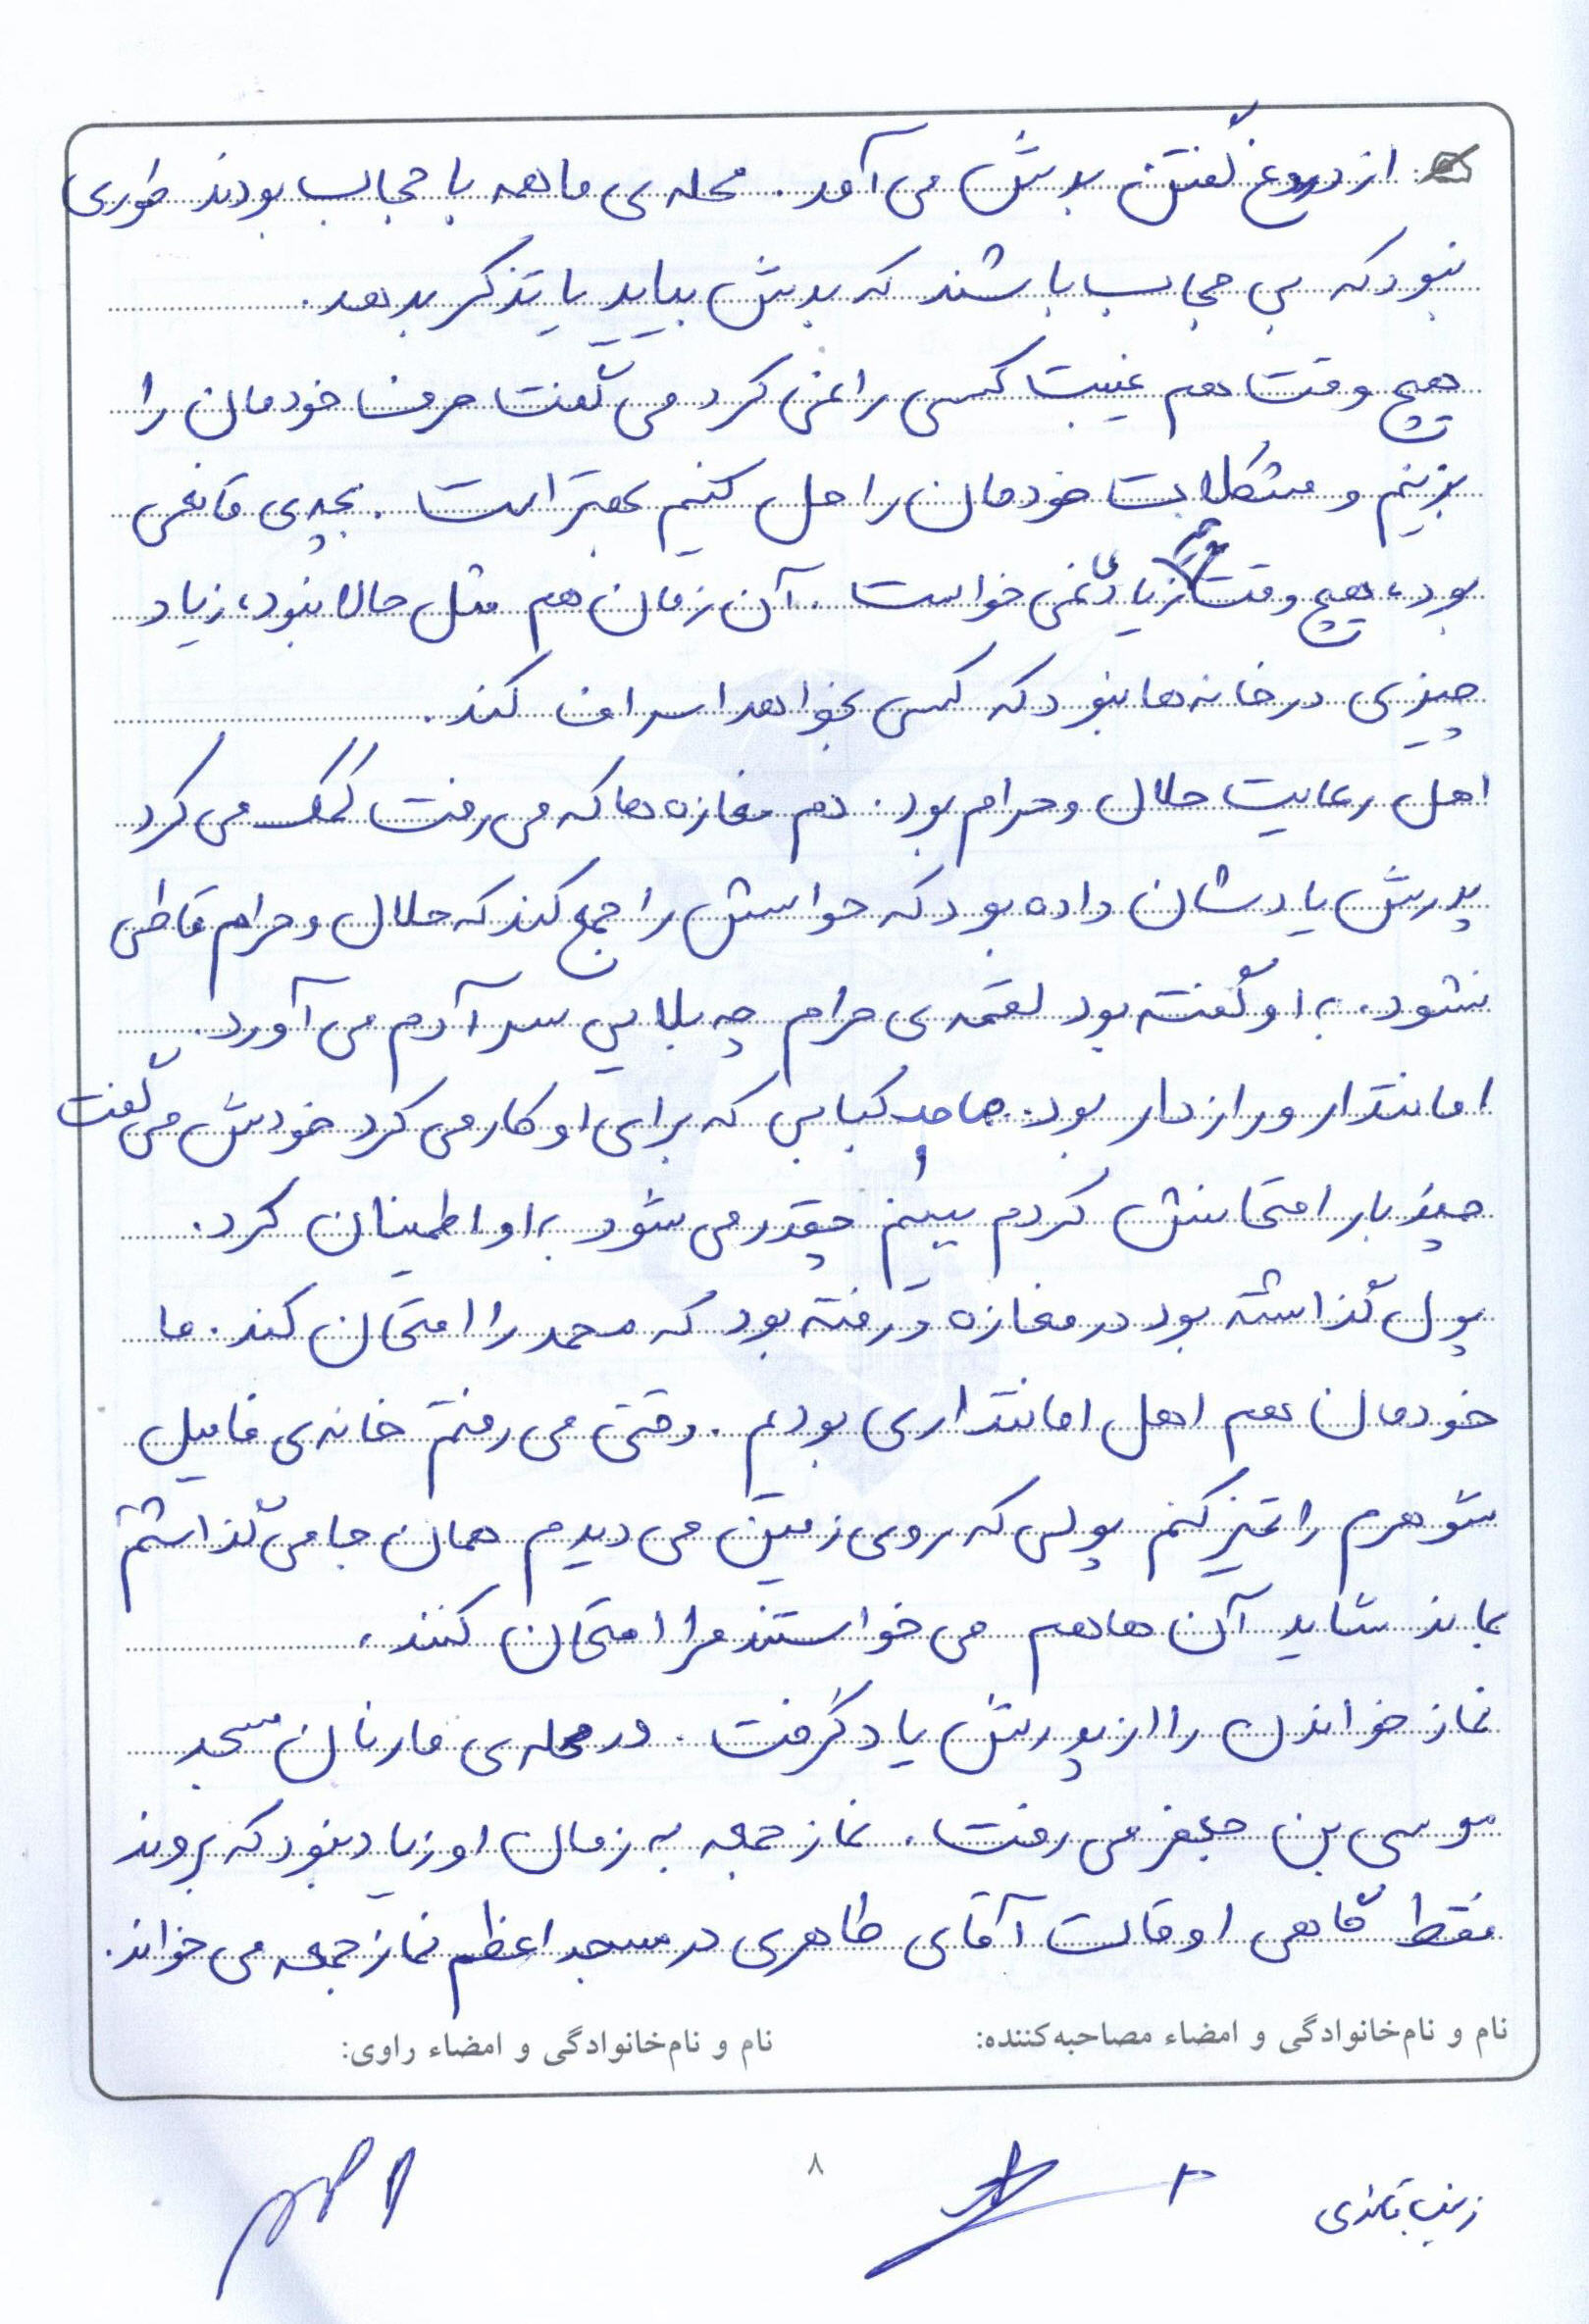 از دروغ گفتن بدش می‌آمد. محله‌ی ما همه با حجاب بودند طوری
نبود که بی حجاب باشند که بدش بیاید یا تذکر بدهد.
هیچ وقت هم غیبت کسی را نمی کرد می گفت حرف خودمان را
بزنیم و مشکلات خودمان را حل کنیم بهتر است. بچه‌ی قانعی
بود، هیچ وقت زیاد نمی خواست. آن زمان هم مثل حالا نبود، زیاد
چیزی در خانه ها نبود که کسی بخواهد اسراف کند.
اهل رعایت حلال و حرام بود. دم مغازه ها که می رفت کمک می کرد
پدرش یادشان داده بود که حواسش را جمع کند که حلال و حرام قاطی
نشود. به او گفته بود لقمه ی حرام چه بلایی سر آدم می آورد.
امانتدار و رازدار بود. صاحب کبابی که برای او کار می کرد خودش می گفت
چند بار امتحانش کردم ببینم چقدر می شود به او اطمینان کرد.
پول گذاشته بود در مغازه و رفته بود که محمد را امتحان کند. ما
خودمان هم اهل امانتداری بودیم. وقتی می رفتم خانه ی فامیل
شوهرم را تمیز کنم پولی که روی زمین می دیدم همان جا می گذاشتم
بماند شاید آن ها هم می خواستند مرا امتحان کنند.
نماز خواندن را از پدرش یاد گرفت. در محله ی مارنان مسجد
موسی بن جعفر می رفت. نماز جمعه به زمان او زیاد نبود که بروند
فقط گاهی اوقات آقای طاهری در مسجد اعظم نماز جمعه می خواند.
نام و نام‌خانوادگی و امضاء مصاحبه‌کننده: نام و نام‌خانوادگی و امضاء راوی:
۸
زینب